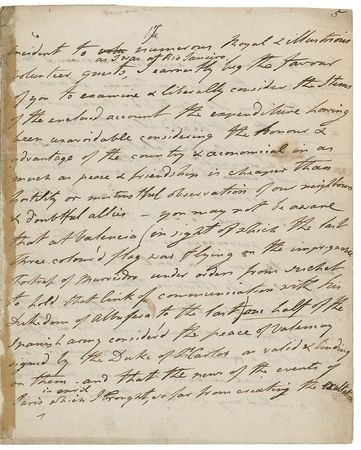 5
The
incident to such numerous Royal & Illustrious
as I was at Rio Janeiro
volunteer guests, I earnestly beg the favour
of you to examine & literally consider the Items
of the enclosed account the expenditure having
been unavoidable considering the honour &
advantage of the country & œconomical in as
much as peace & friendship is cheaper than
hostility or mistrustful observation of our neighbours
& doubtful allies – you may not be aware
that at Valencia (in sight of which the last
three coloured flag was flying on the impregnable
Fortress of Murviedro under orders from Suchet
to hold that link of communication with his
Dukedom of Albufera to the last) one half of the
Spanish army consider'd the peace of Valencay
signed by the Duke of as valid & binding
on them – and that the news of the events of
Paris which I brought, so far from creating the